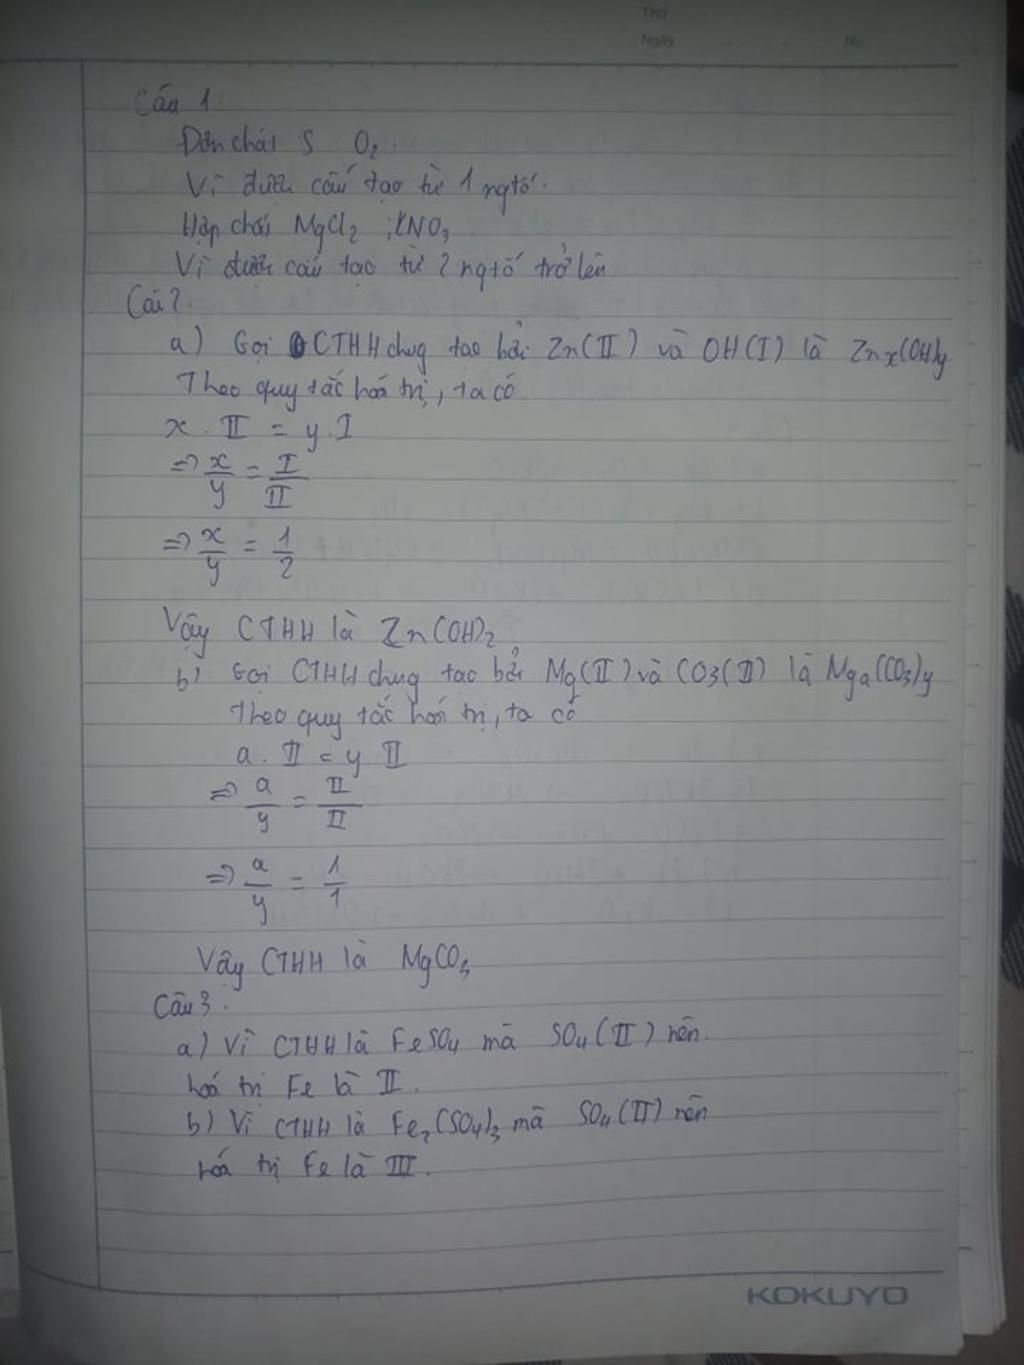 Thứ
Ngày No.
Câu 1:
Đơn chất S O₂.
Vì được cấu tạo từ 1 ngtố.
Hợp chất MgCl₂ ; KNO₃
Vì được cấu tạo từ 2 ngtố trở lên
Câu 2.
a) Gọi CTHH chug tạo bởi Zn(II) và OH(I) là Znx(OH)y
Theo quy tắc hoá trị, ta có
x . II = y . I
=> x/y = I/II
=> x/y = 1/2
Vậy CTHH là Zn(OH)₂
b) Gọi CTHH chug tạo bởi Mg(II) và CO3(II) là Mga(CO₃)y
Theo quy tắc hoá trị, ta có
a . II = y II
=> a/y = II/II
=> a/y = 1/1
Vậy CTHH là MgCO₃
Câu 3.
a) Vì CTHH là FeSO₄ mà SO₄(II) nên
hoá trị Fe là II.
b) Vì CTHH là Fe₂(SO₄)₃ mà SO₄(II) nên
hoá trị Fe là III.
KOKUYO